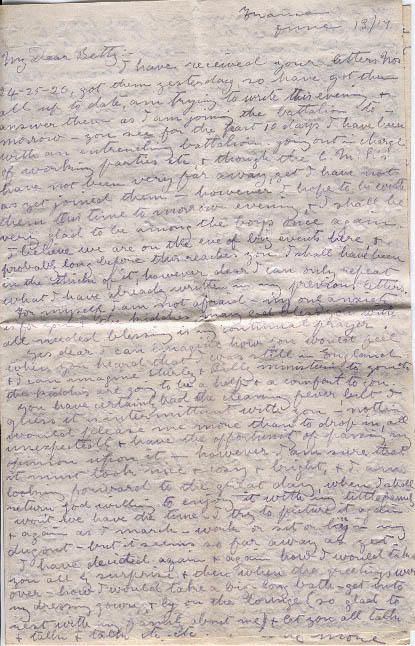 France
June 13/17
My Dear Betty:-
I have received your letters Nos
24-25-26, got them yesterday so have got them
all up to date, am trying to write this evening &
answer them as I am joining the battalion to-
morrow - you see for the past 10 days I have been
with an entrenching battalion, going out in charge
of working parties etc & though the C.M.R's
have not been very far away yet I have not
as yet joined them - however I hope to be with
them this time to morrow evening & I shall be
very glad to be among the boys once again
I believe we are on the eve of big events here, &
probably long before this reaches you I shall have been
in the thick of it however dear I can only repeat
what I have already written in my previous letters
For myself I am not afraid - my one anxiety
is for you & the kiddies may God bless you with
all needed blessing is my continual prayer
Yes dear I can imagine how you would feel
when you heard that I was still in England
& I can imagine Shirley & Billy ministering to you
the kiddies are going to be a help & a comfort to you.
You have certainly had the cleaning fever but I
guess it is intermittent with you - nothing
would please me more than to drop in all
unexpectedly & have the opportunity of passing my
opinion upon it - however I am sure that
it must look nice & cosy & bright, & I am
looking forward to the great day when I shall
return God willing to enjoy it with my little family
wont we have the time, I try to picture it again
& again as I march, work or sit or lay in my
dugout - but it seems so far away as yet -
I have decided again & again how I would take
you all by surprise & then when the greetings were
over - how I would take a big long bath - get into
my dressing gown & ly on the lounge (so glad to
rest with my family about me) & let you all talk
& talk & talk etc etc. more